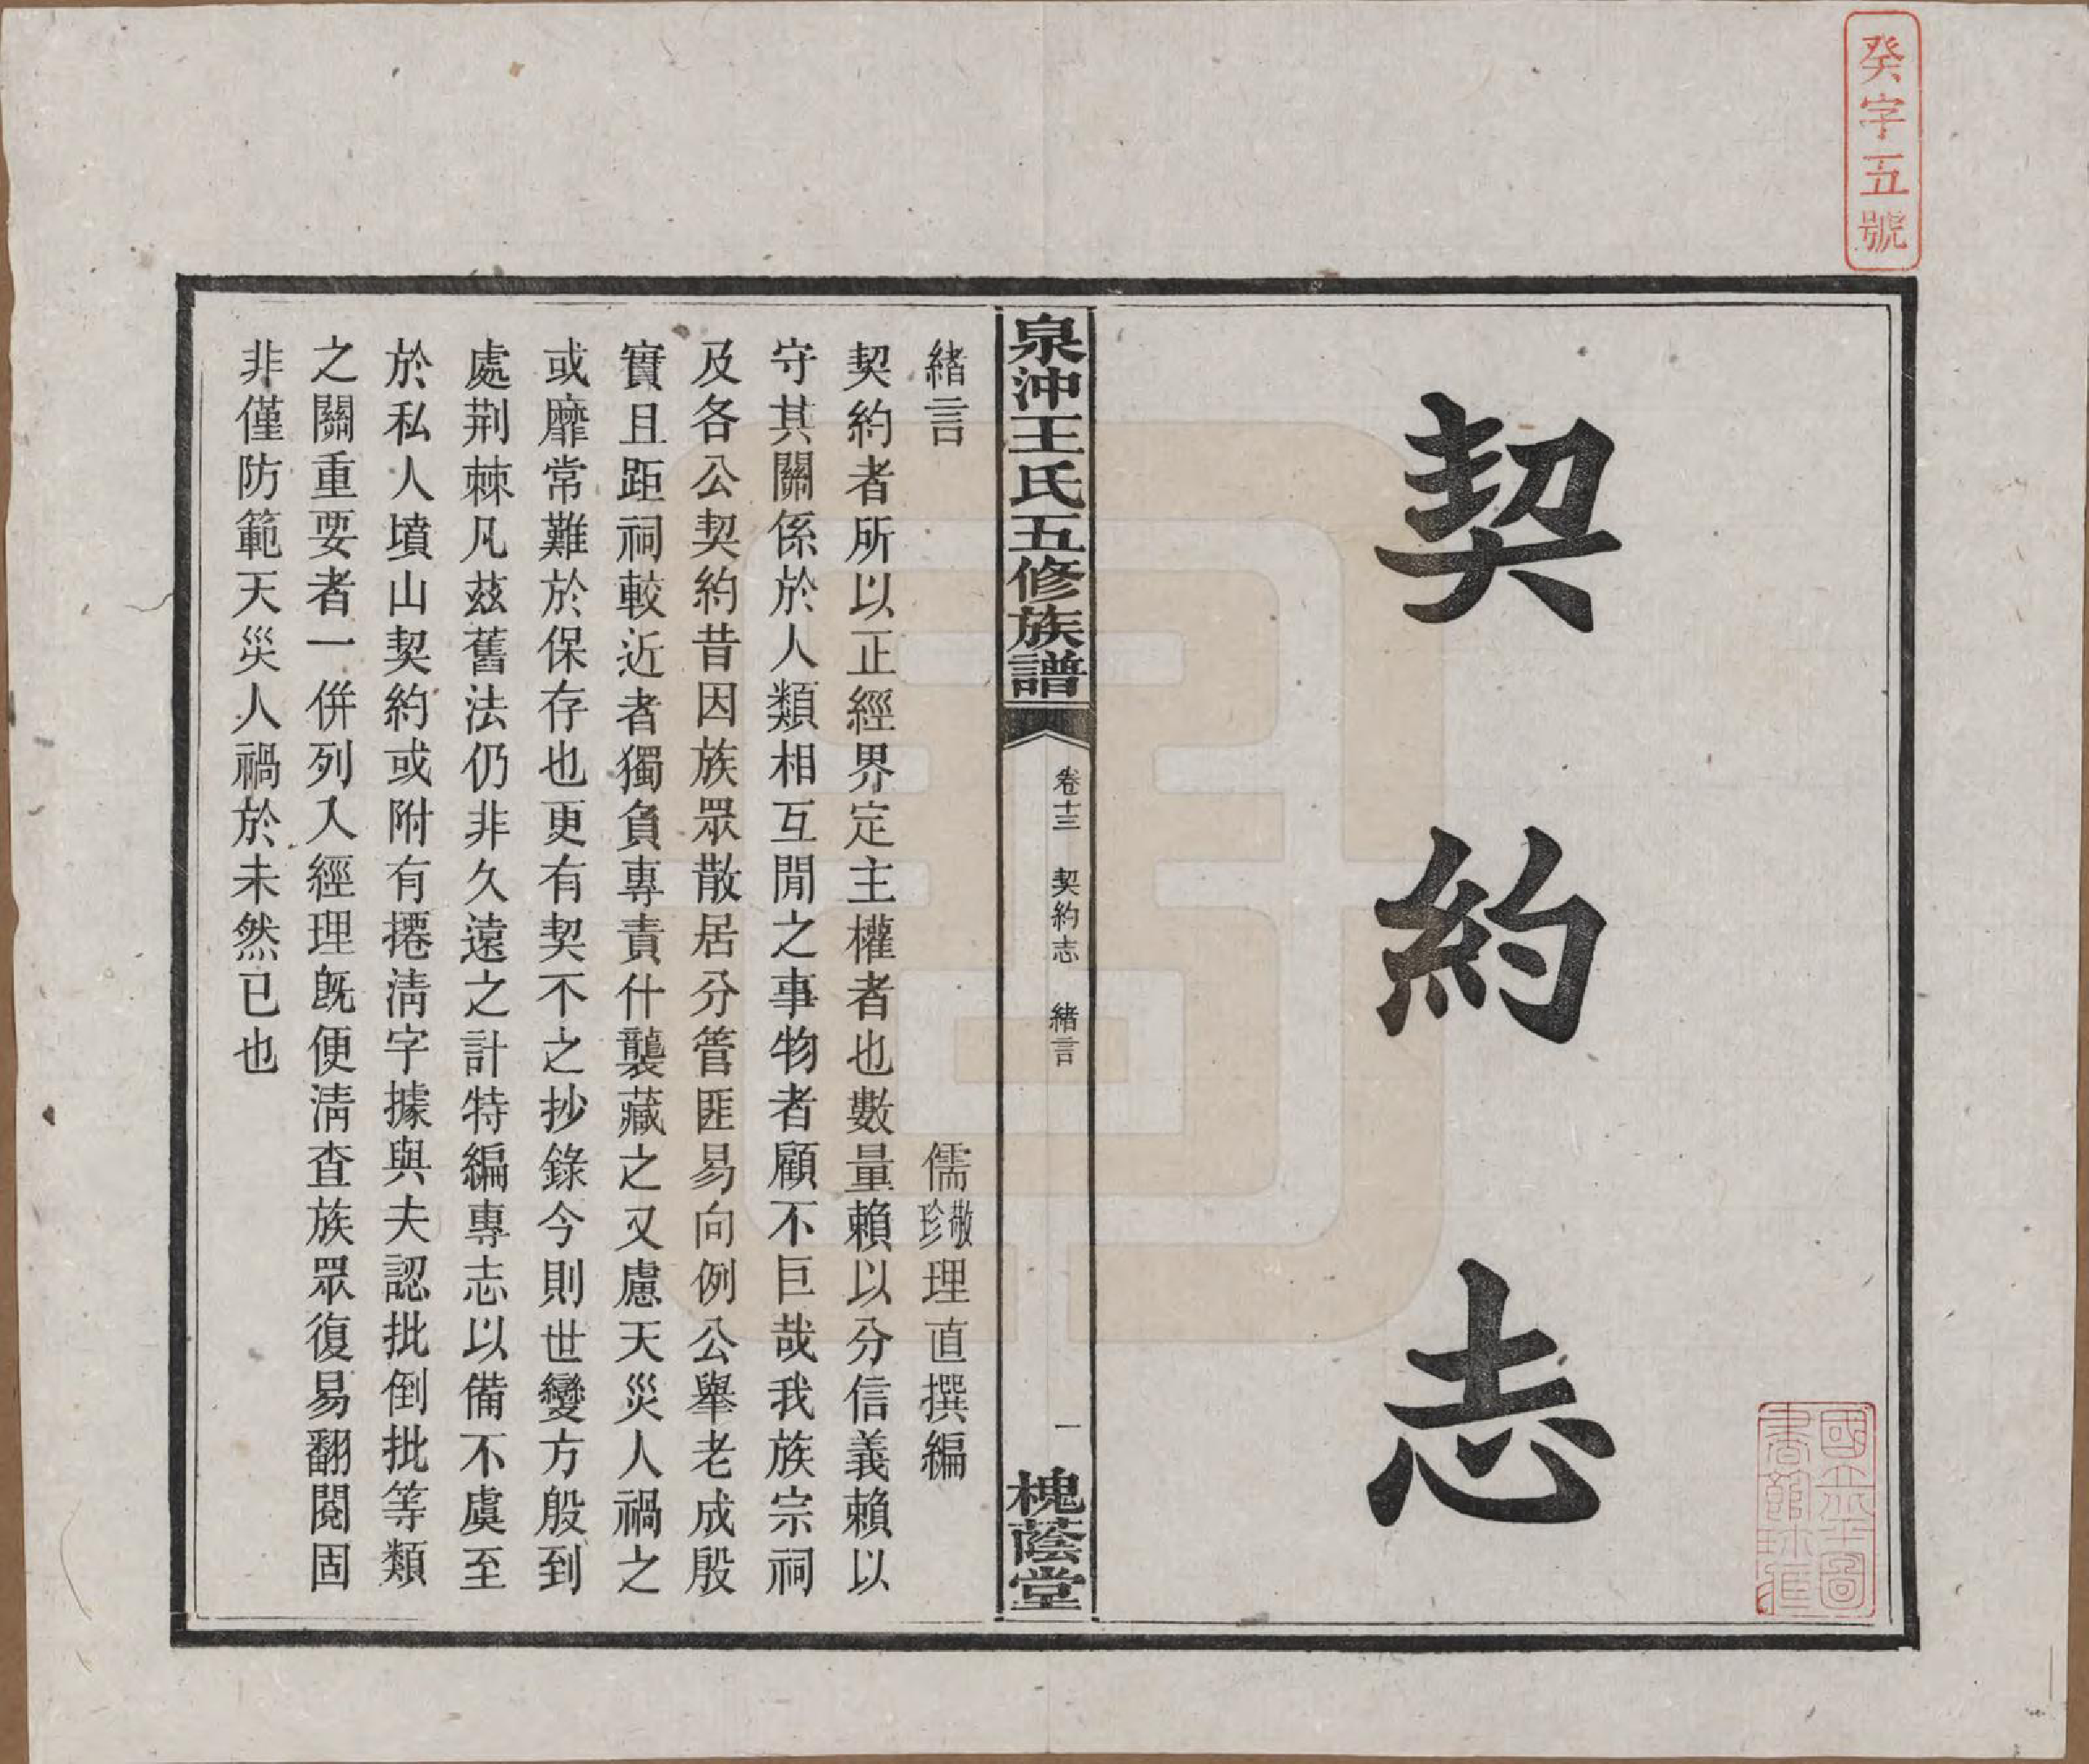 癸字五號
契約志
國立北平圖
書館珍藏
泉沖王氏五修族譜
卷十三 契約志 緒言
一
槐蔭堂
緒言 儒珍敝理直撰編
契約者所以正經界定主權者也數量賴以分信義賴以
守其關係於人類相互閒之事物者顧不巨哉我族宗祠
及各公契約昔因族眾散居分管匪易向例公舉老成殷
實且距祠較近者獨負專責什襲藏之又慮天災人禍之
或靡常難於保存也更有契不之抄錄今則世變方殷到
處荆棘凡茲舊法仍非久遠之計特編專志以備不虞至
於私人墳山契約或附有捲淸字據與夫認批倒批等類
之關重要者一併列入經理旣便淸查族眾復易翻閱固
非僅防範天災人禍於未然已也